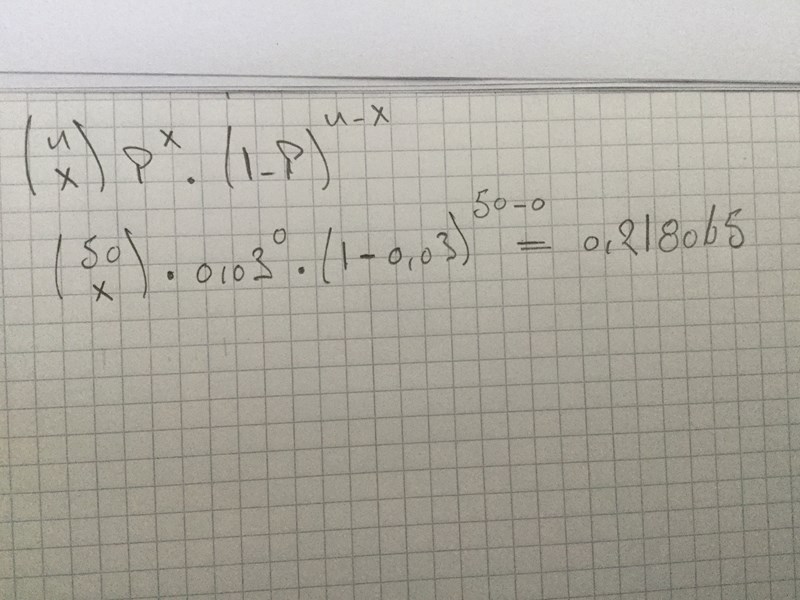 (n x) p^x · (1-p)^n-x
(50 x) · 0,03^0 · (1-0,03)^50-0 = 0,218065